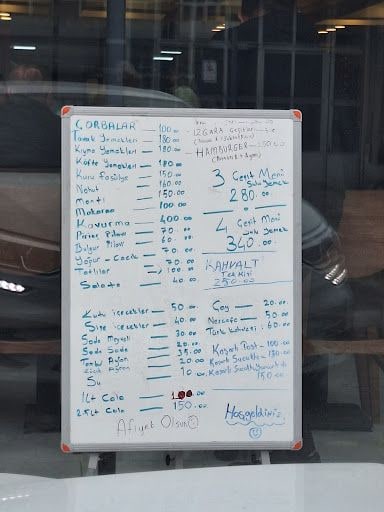 ÇORBALAR — 100.00
Tavuk Yemekleri — 180.00
Kıyma Yemekleri — 180.00
Köfte Yemekleri — 180.00
Kuru Fasülye — 150.00
Nohut — 160.00
Mantı — 150.00
Makarna — 100.00
Kavurma — 400.00
Pirinç Pilavı — 70.00
Bulgur Pilavı — 60.00
Yoğurt - Cacık — 70.00
Tatlılar — 100.00
Salata — 40.00
IZGARA Çeşitleri
HAMBURGER
3 Çeşit Menü
Sulu Yemek
280.00
4 Çeşit Menü
Sulu Yemek
340.00
KAHVALTI
Tek Kişi
250.00
Kutu içecekler — 50.00
Şişe içecekler — 40.00
Sade Meyveli — 30.00
Sade Soda — 20.00
Ayran — 35.00
Ayran — 20.00
Su — 10.00
1 Lt Cola — 100.00
2.5 Lt Cola — 150.00
Çay — 20.00
Nescafe — 50.00
Türk kahvesi : 60.00
Kaşarlı Tost — 100.00
Kaşarlı Sucuklu — 130.00
Kaşarlı Sucuklu Yumurtalı
150.00
Afiyet Olsun
Hoşgeldiniz